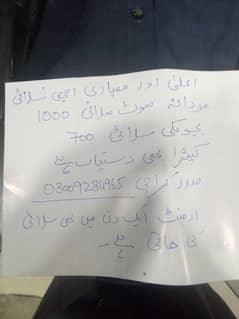 اعلیٰ اور معیاری اچھی سلائی
مردانہ سوٹ سلائی 1000
بچوں کی سلائی 700
کپڑا بھی دستیاب ہے
صدر کراچی 03009234965
ارجنٹ ایک دن میں بھی سلائی
کی جاتی ہے۔